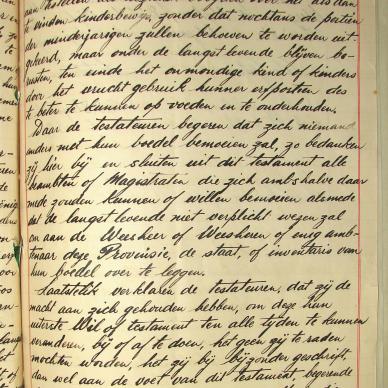 te vinden kinderbewijs, zonder dat nochtans de partien
der minderjarigen zullen behoeven te worden uit-
gekeerd, maar onder de langstlevende blijven be-
rusten, ten einde het onmondige kind of kinders
door het vrucht gebruik hunner erfportien des
te beter te kunnen op voeden en te onderhouden.
Daar de testateuren begeren dat zich niemand
anders met hun boedel bemoeien zal, zo bedanken
zij hier bij en sluiten uit dit testament alle
Ambten of Magistraten die zich ambtshalve daar
mede zouden kunnen of willen bemoeien alsmede
dat de langst levende niet verplicht wezen zal
om aan de Weesheer of Weesheren of enig amb-
tenaar dezer Provinsie, de staat, of inventaris van
hun boedel over te leggen.
Laatstelik verklaren de testateuren, dat zij de
macht aan zich gehouden hebben, om deze hun
uiterste Wil of testament ten alle tyden te kunnen
veranderen, bij of af te doen, het geen zij te raden
mochten worden, het zij bij bijzonder geschrift,
dan wel aan de voet van dit testament begerende